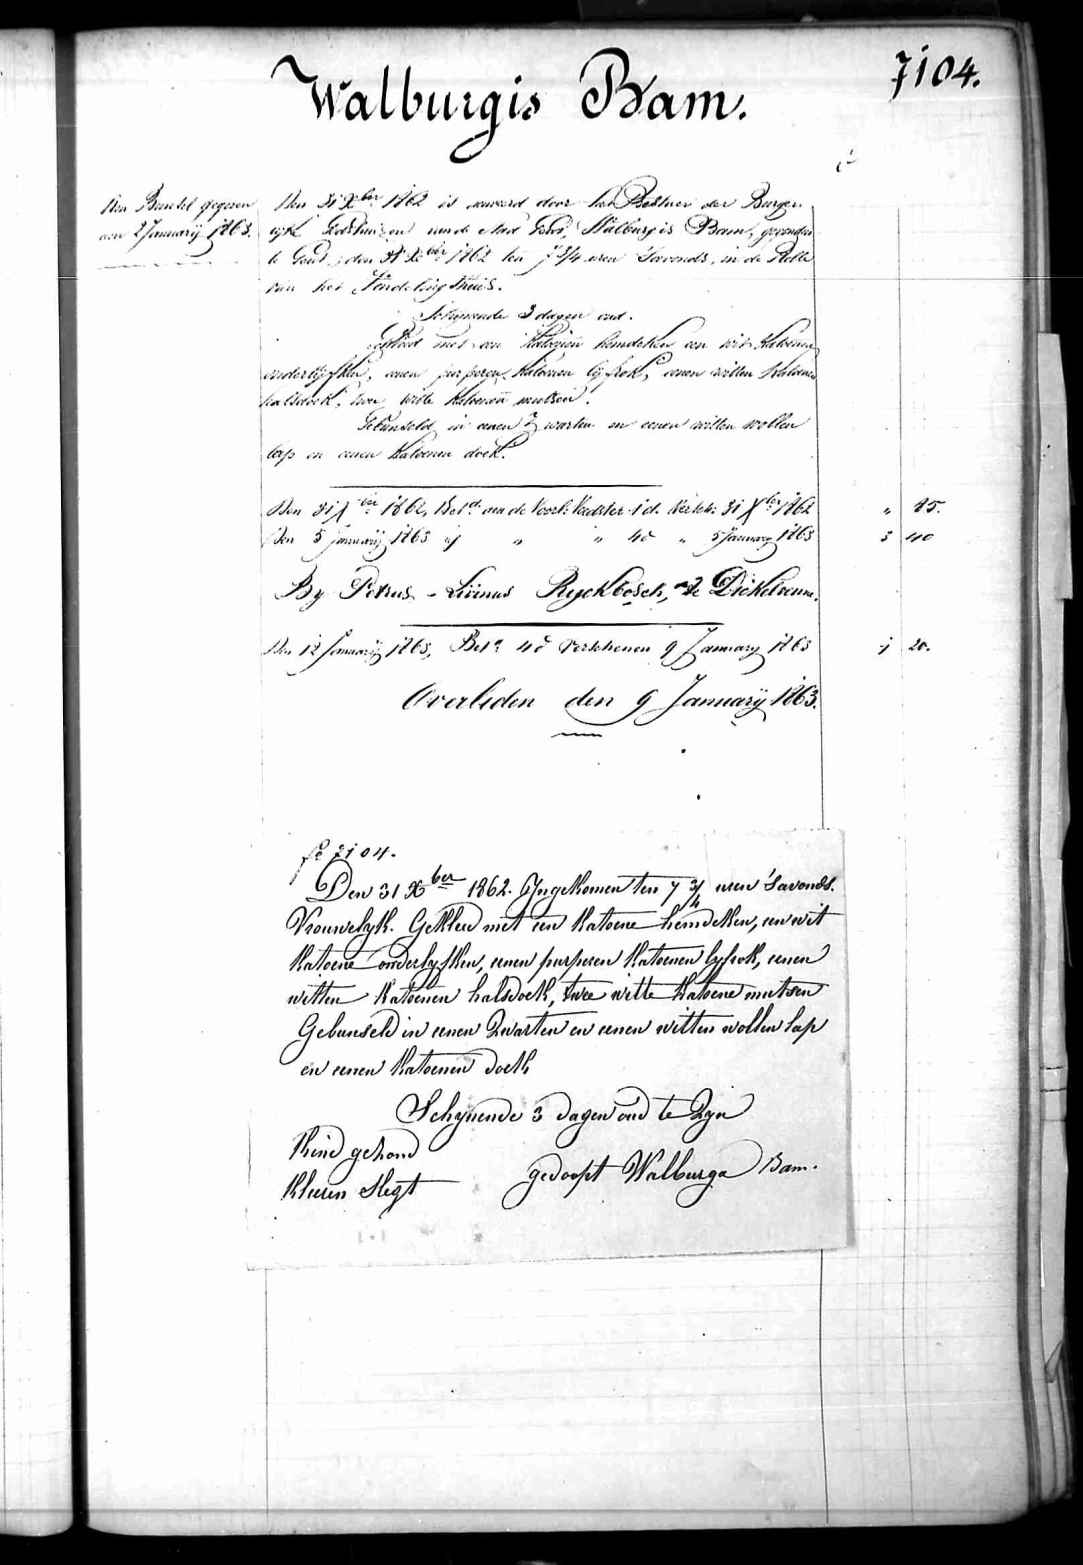 7104.
Walburgis Bam.
Den 31 Xber 1862 is aenveerd door het Bestuer der Burger-
lyke Godshuizen van de stad Gend, Walburgis Bam, gevonden
te Gend, den 31 Xber 1862 ten 7 3/4 uren 'savonds, in de Rolle
van het Vindelinghuis.
Schynende 3 dagen oud.
Gekleed met een katoenen hemdeken een wit katoenen
onderlyfken, eenen purperen katoenen lyfrok, eenen witten katoenen
halsdoek, twee witte katoenen mutsen.
Gebunseld in eenen zwarten en eenen witten wollen
lap en eenen katoenen doek.
Den 31 Xber 1862, Bet.d aen de Voorl. 31 Xber 1862 " 85.
Den 5 January 1863 " " 40 " 5 January 1863 3 40
By Petrus-Livinus Ryckbosch, te Dickelvenne.
Den 12 January 1863, Bet.d 4d verschenen 9 January 1863 1 20.
Overleden den 9 January 1863.
fo 7104.
Den 31 Xber 1862. Ingekomen ten 7 3/4 uren 'savonds.
Vrouwelyk. Gekleed met een katoene hemdeken, een wit
katoene onderlyfken, eenen purperen katoenen lyfrok, eenen
witten katoenen halsdoek, twee witte katoene mutsen
Gebunseld in eenen zwarten en eenen witten wollen lap
en eenen katoenen doek
Schynende 3 dagen oud te zyn
Kind gezond
Kleeren slegt
gedoopt Walburga Bam.